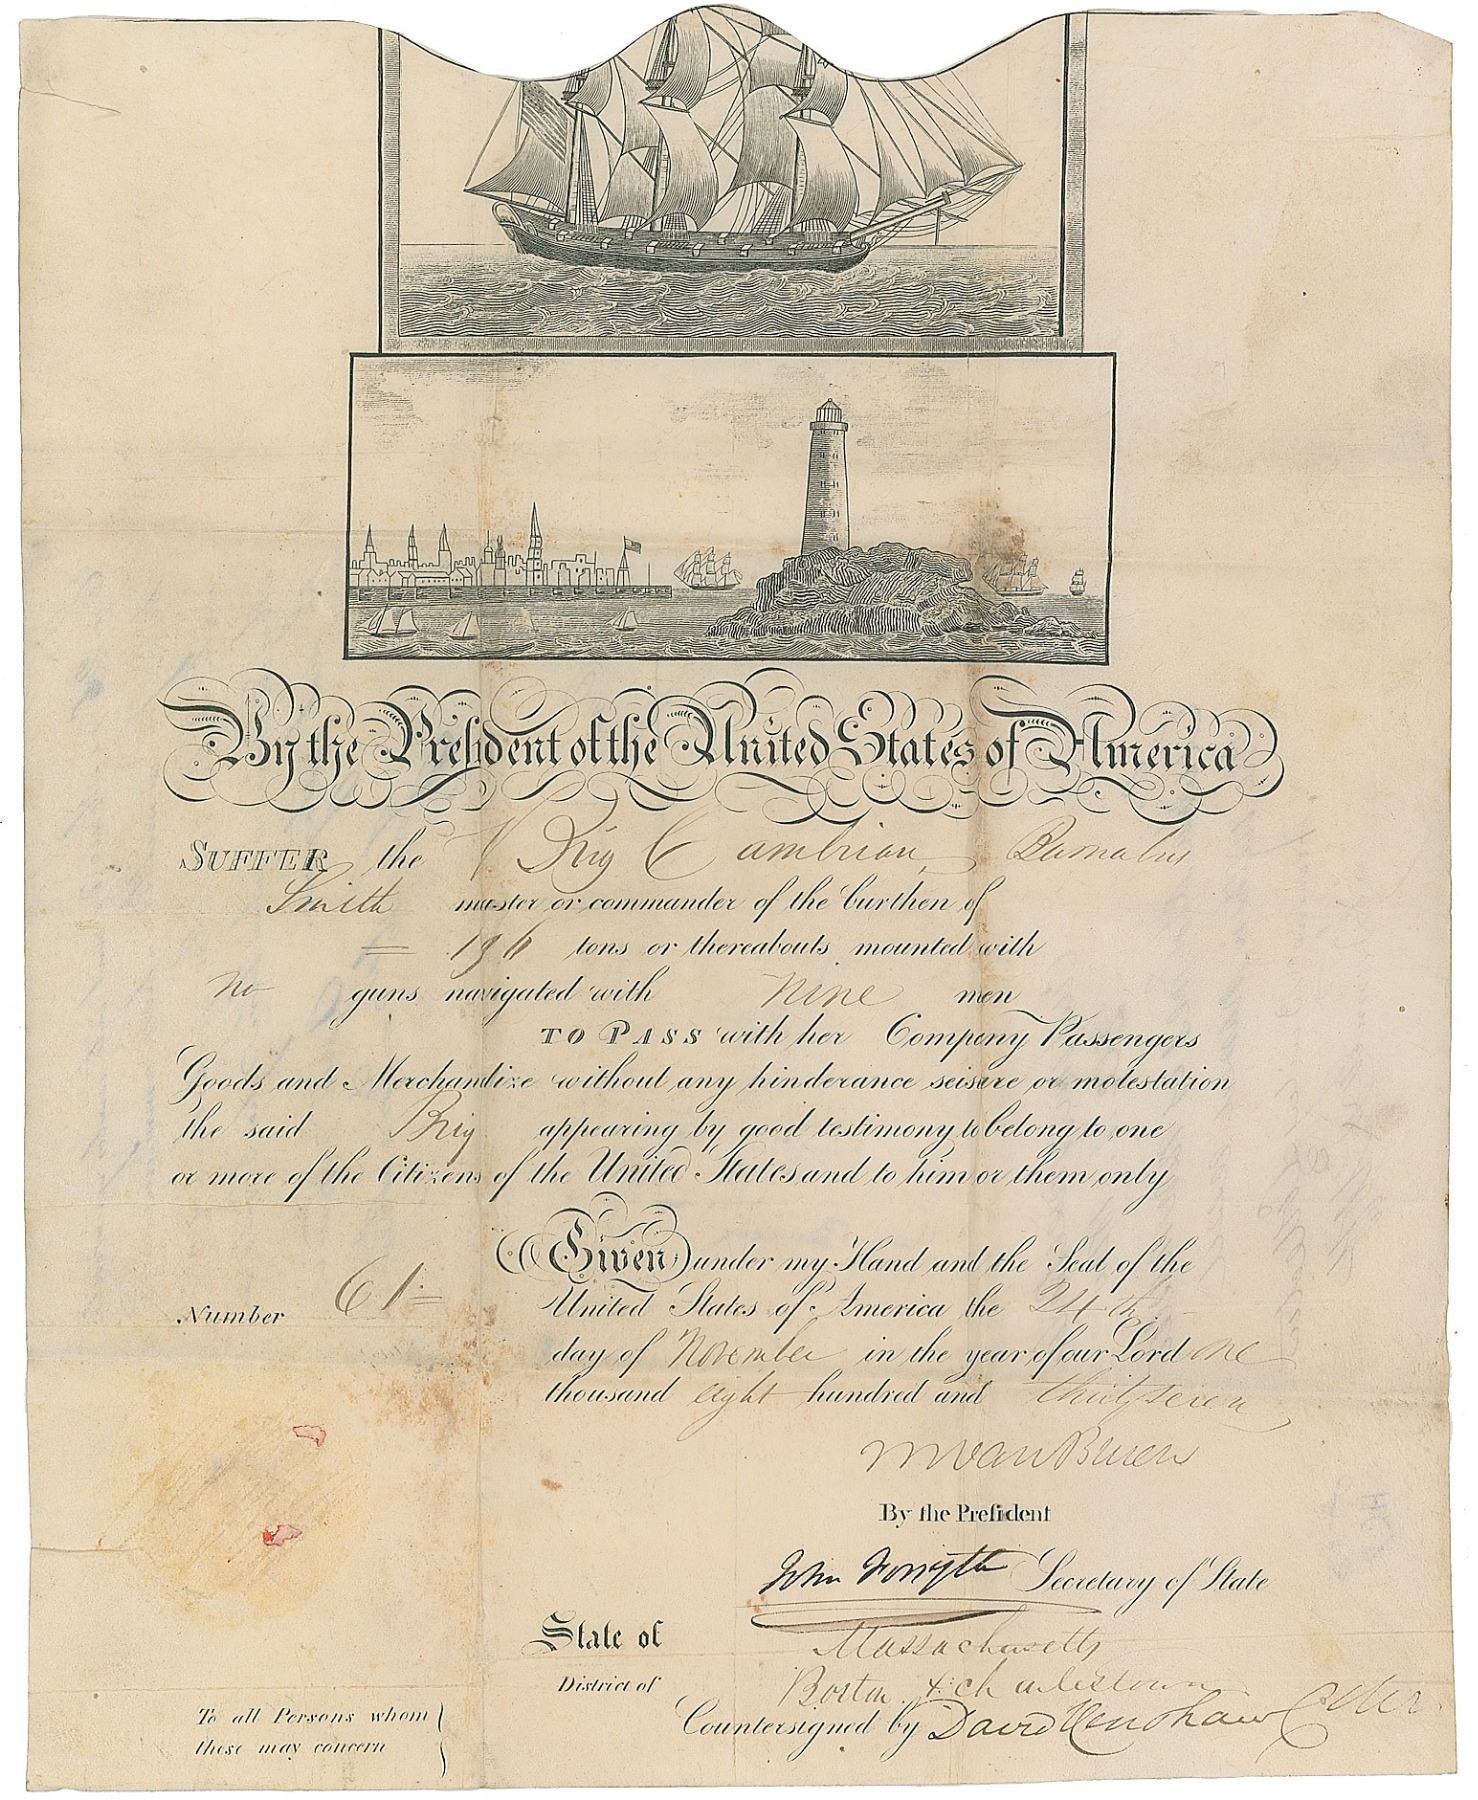 By the President of the United States of America
SUFFER the Brig Cambrian, Barnabas
Smith master or commander of the burthen of
= 196 tons or thereabouts mounted with
no guns navigated with nine men
TO PASS with her Company Passengers
Goods and Merchandize without any hinderance seisure or molestation
the said Brig appearing by good testimony to belong to one
or more of the Citizens of the United States and to him or them only
Given under my Hand and the Seal of the
Number 61= United States of America the 24th
day of November in the year of our Lord one
thousand eight hundred and thirty seven
M Van Buren
By the Preſident
John Forsyth Secretary of State
State of Massachusetts
District of Boston & Charlestown
Countersigned by David Henshaw
To all Persons whom
these may concern